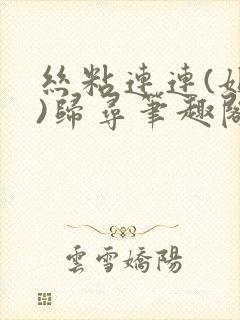 絲粘連連(
)歸尋筆趣閣
雲雪嬌陽